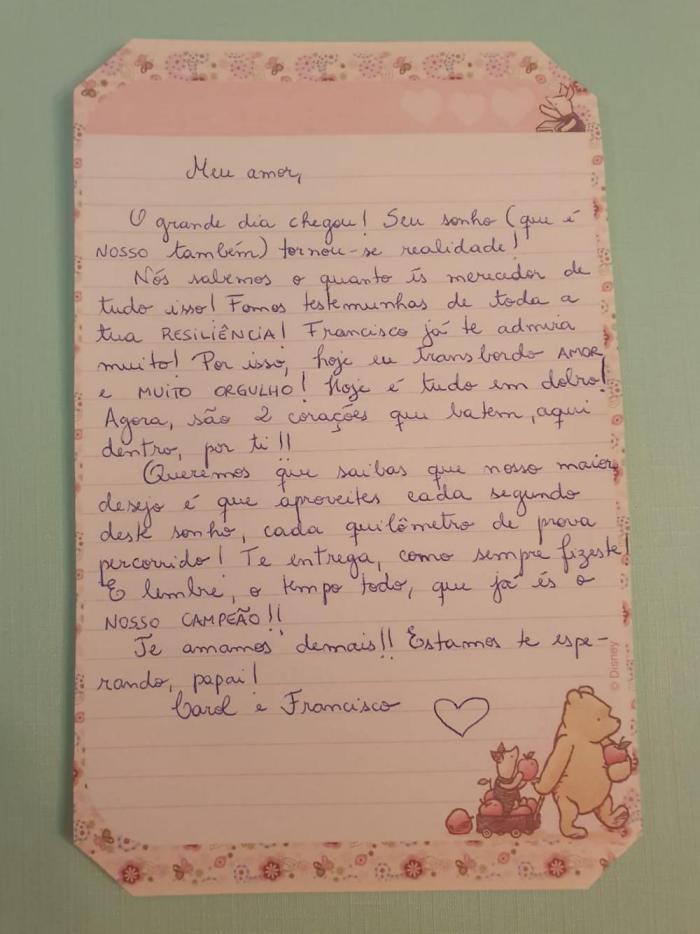 Meu amor,
O grande dia chegou! Seu sonho (que é
NOSSO também) tornou-se realidade!
Nós sabemos o quanto és merecador de
tudo isso! Fomos testemunhas de toda a
tua RESILIÊNCIA! Francisco já te admira
muito! Por isso, hoje eu transbordo AMOR
e MUITO ORGULHO! Hoje é tudo em dobro!
Agora, são 2 corações que batem, aqui
dentro, por ti!!
Queremos que saibas que nosso maior
desejo é que aproveites cada segundo
deste sonho, cada quilômetro de prova
percorrido! Te entrega, como sempre fizeste!
E lembre, o tempo todo, que já és o
NOSSO CAMPEÃO!!
Te amamos demais!! Estamos te espe-
rando, papai!
Carol e Francisco
© Disney